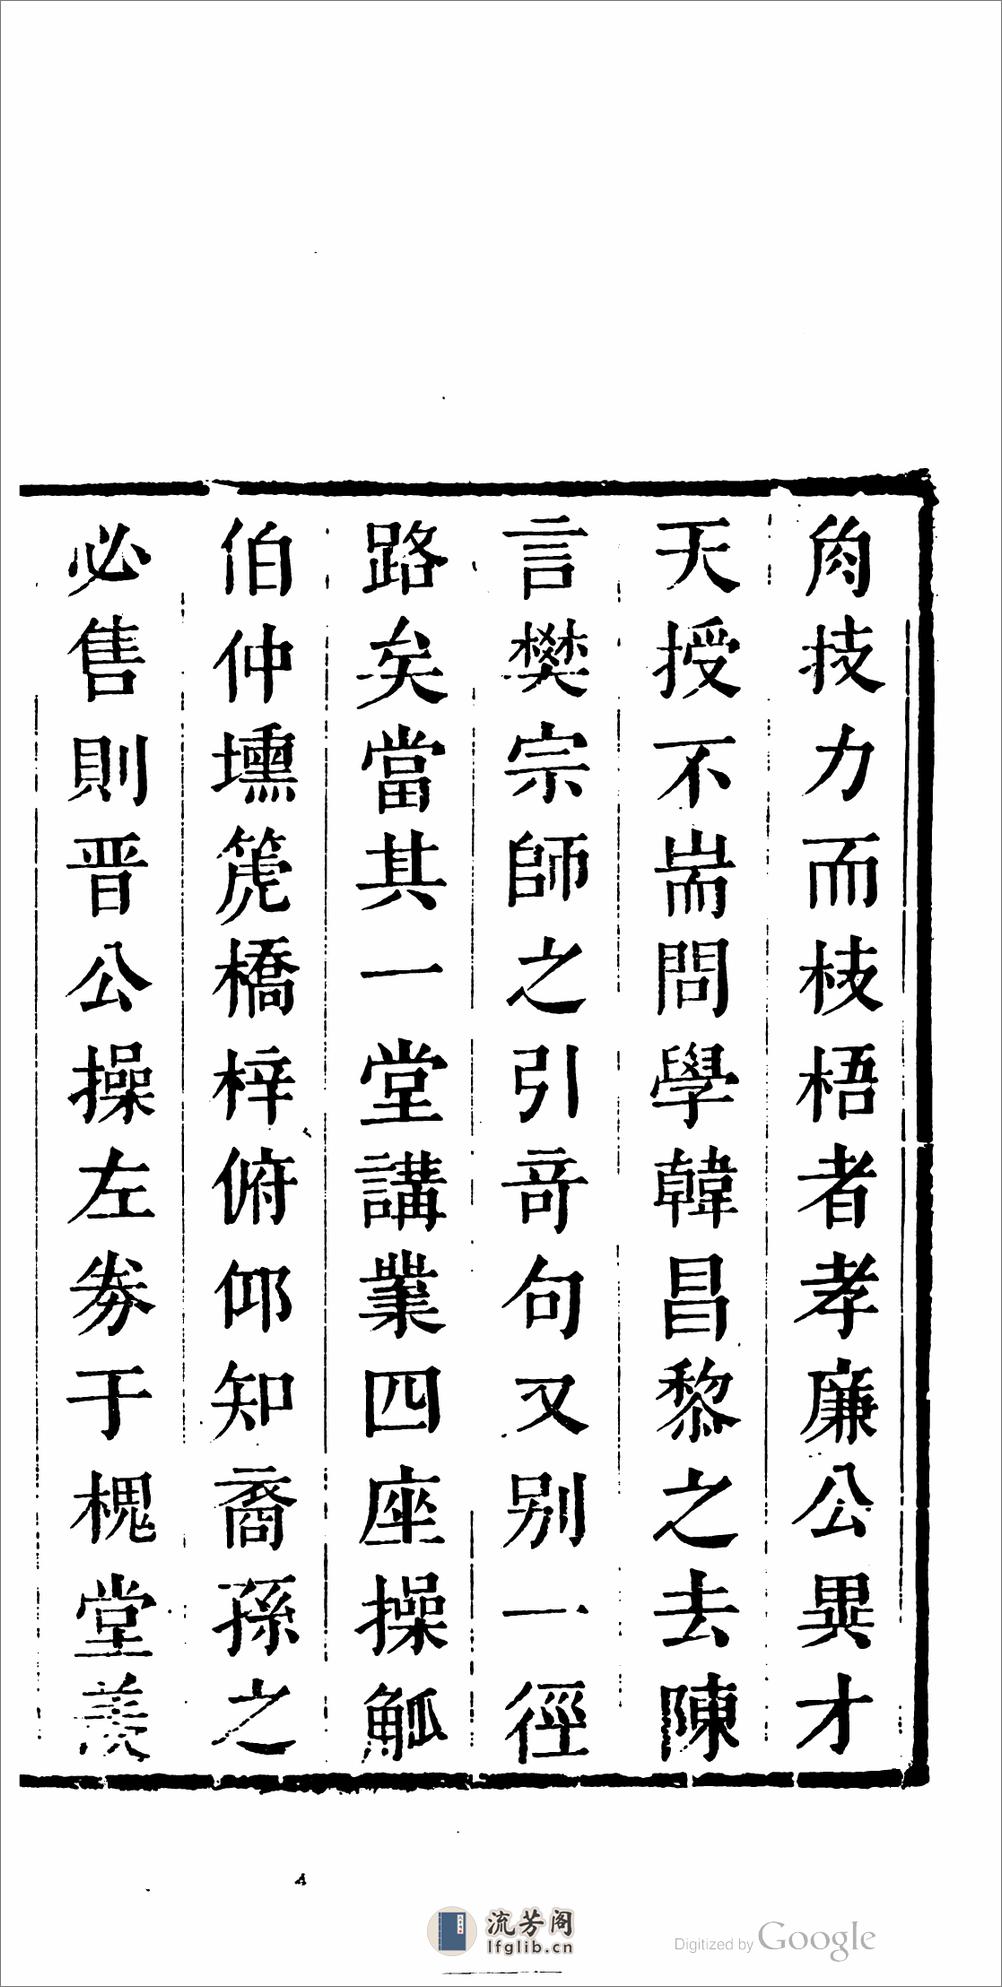 角技力而枝梧者孝廉公異才
天授不耑問學韓昌黎之去陳
言樊宗師之引奇句又别一徑
路矣當其一堂講業四座操觚
伯仲壎箎橋梓俯仰知裔孫之
必售則晋公操左券于槐堂羨
A
流芳阁
lfglib.cn
Digitized by Google